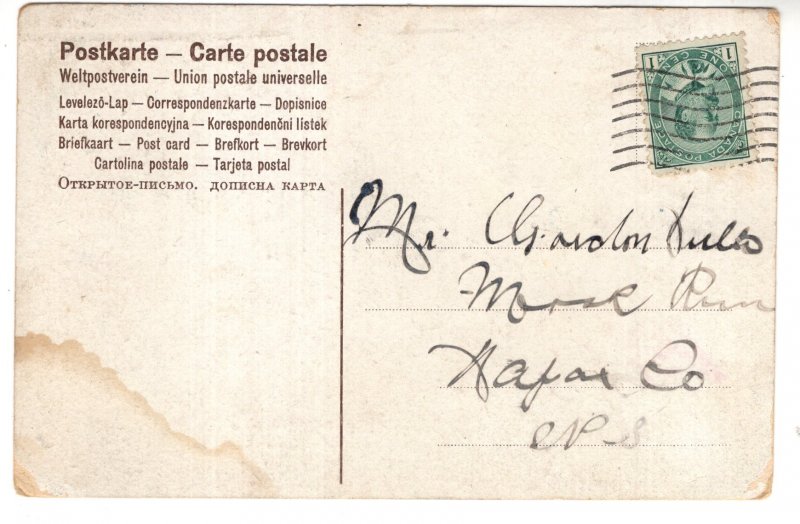 Postkarte — Carte postale
Weltpostverein — Union postale universelle
Levelezō-Lap — Correspondenzkarte — Dopisnice
Karta korespondencyjna — Korespondenčni listek
Briefkaart — Post card — Brefkort — Brevkort
Cartolina postale — Tarjeta postal
Открытое-письмо. дописна карта
1 ONE CENT 1
CANADA POSTAGE
Mr. Gordon
Run
Co
N.S